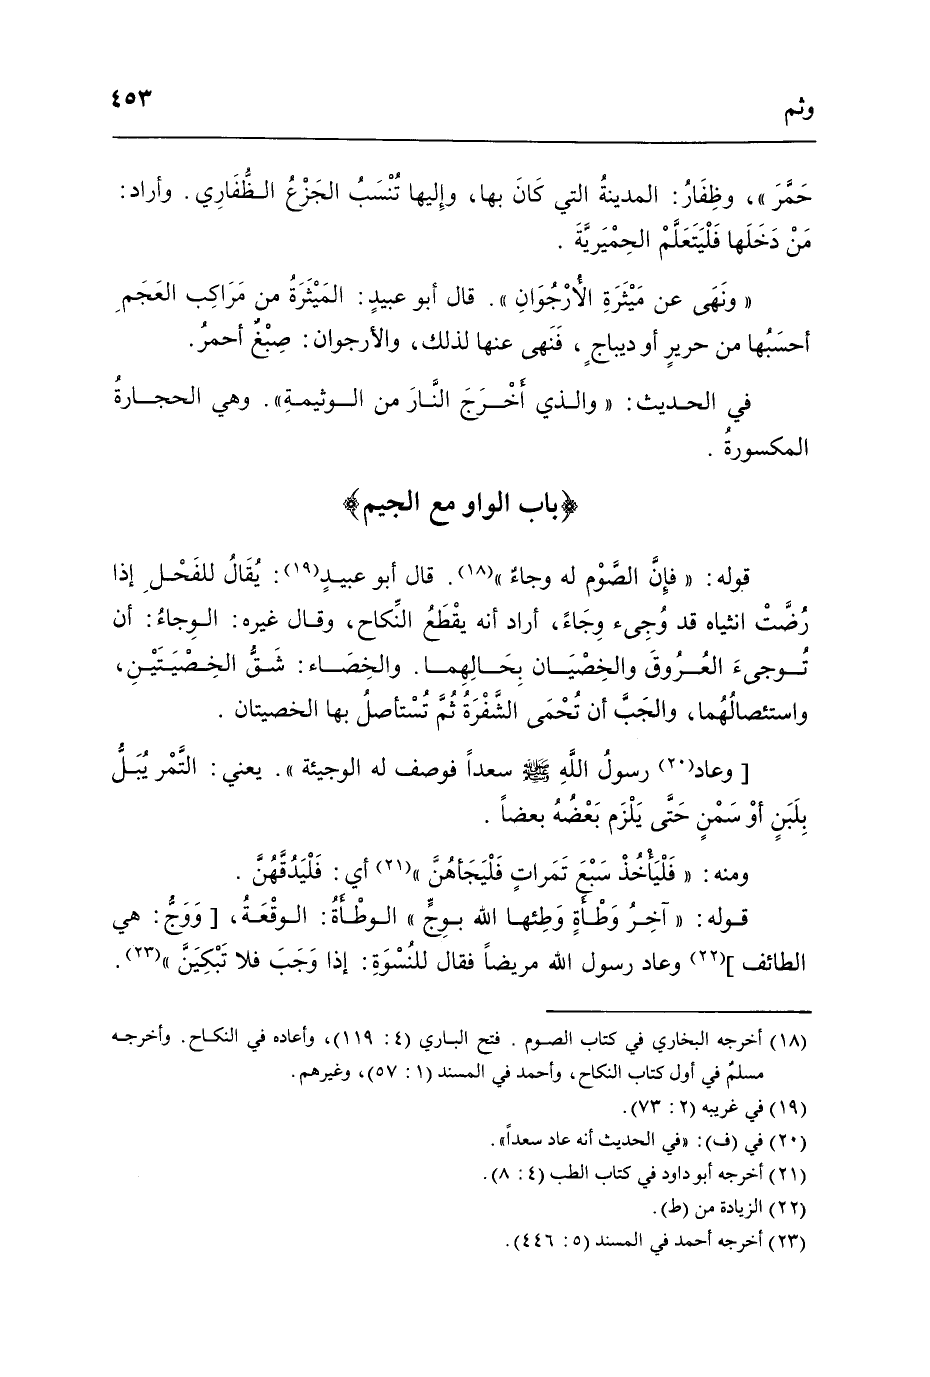 وثم ٤٥٣
حَمَّرَ »، وظِفَارُ: المدينةُ التي كَانَ بها، وإليها تُنْسَبُ الجَزْعُ الظُّفَارِي. وأراد:
مَنْ دَخَلَها فَلْيَتَعَلَّمْ الحِمْيَرِيَّةَ .
« ونَهَى عن مَيْثَرَةِ الأُرْجُوَانِ ». قال أبو عبيدٍ: المَيْثَرَةُ من مَرَاكِب العَجَمِ
أحسَبُها من حريرٍ أو ديباجٍ ، فَنَهى عنها لذلك، والأرجوان: صِبْغٌ أحمرُ.
في الحديث: « والذي أَخْرَجَ النَّارَ من الوثيمةِ». وهي الحجارةُ
المكسورةُ .
﴿باب الواو مع الجيم﴾
قوله: « فإنَّ الصَّوْم له وجاءٌ »(١٨). قال أبو عبيدٍ(١٩): يُقَالُ للفَحْلِ إذا
رُضَّتْ انثياه قد وُجِىء وِجَاءً، أراد أنه يقْطَعُ النِّكاح، وقال غيره: الوجاءُ: أن
تُوجىءَ العُروقَ والخِصْيَان بِحَالِهِما. والخِصَاء: شَقُّ الخِصْيَتَيْنِ،
واستئصالُهُما، والجَبَّ أن تُحْمَى الشَّفْرَةُ ثُمَّ تُسْتأصلُ بها الخصيتان .
[ وعاد(٢٠) رسولُ اللَّهِ ﷺ سعداً فوصف له الوجيئة ». يعني: التَّمْر يُبَلُّ
بِلَبَنٍ أوْ سَمْنٍ حَتَّى يَلْزَم بَعْضُهُ بعضاً .
ومنه: « فَلْيَأْخُذْ سَبْعَ تَمَراتٍ فَلْيَجَأهُنَّ »(٢١) أي: فَلْيَدُقَّهُنَّ .
قوله: « آخِرُ وَطْأَةٍ وَطِئها الله بوجٍّ » الوطْأَةُ: الوقْعَةُ، [ وَوَجُّ: هي
الطائف ](٢٢) وعاد رسول الله مريضاً فقال للنُسْوَةِ: إذا وَجَبَ فلا تَبْكِيَنَّ »(٢٣).
(١٨) أخرجه البخاري في كتاب الصوم . فتح الباري (٤: ١١٩)، وأعاده في النكاح. وأخرجه
مسلمٌ في أول كتاب النكاح، وأحمد في المسند (١: ٥٧)، وغيرهم.
(١٩) في غريبه (٢: ٧٣).
(٢٠) في (ف): «في الحديث أنه عاد سعداً».
(٢١) أخرجه أبو داود في كتاب الطب (٤: ٨).
(٢٢) الزيادة من (ط).
(٢٣) أخرجه أحمد في المسند (٥: ٤٤٦).